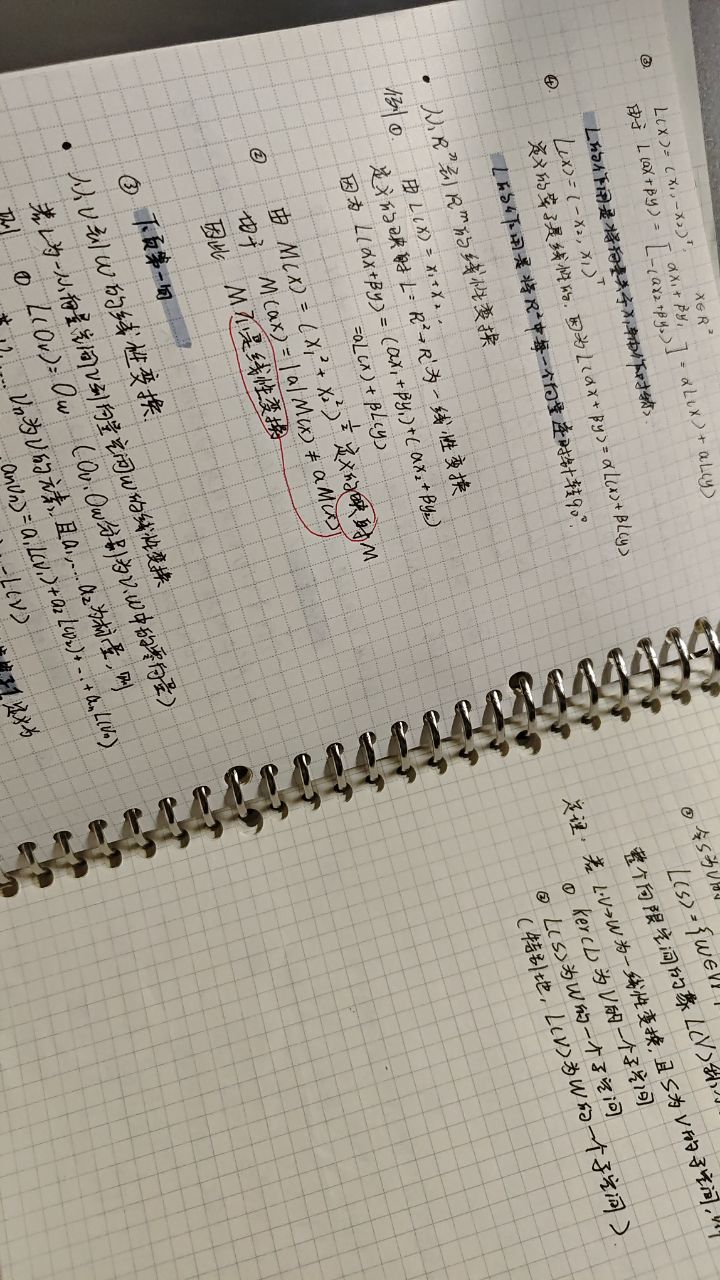 ③ L(x) = (x₁, -x₂)ᵀ, x∈R²
由于 L(αx+βy) = [αx₁+βy₁ -(αx₂+βy₂)] = αL(x) + αL(y)
L的作用是将向量关于x₁轴作对称.
④ L(x) = (-x₂, x₁)ᵀ
定义的算子是线性的, 因为 L(αx+βy) = αL(x)+βL(y)
L的作用是将R²中每一个向量逆时针转90°.
• 从Rⁿ到Rᵐ的线性变换
例① 由 L(x) = x₁+x₂,
定义的映射 L = R²→R¹为一线性变换
因为 L(αx+βy) = (αx₁+βy₁)+(αx₂+βy₂)
=αL(x)+βL(y)
② 由 M(x) = (x₁²+x₂²)^½ 定义的映射M
由于 M(αx)=|α|M(x) ≠ αM(x)
因此 M不是线性变换
③ 下页第一句
• 从V到W的线性变换
若L为一从向量空间V到向量空间W的线性变换
则 ① L(0v)=0w (0v, 0w分别为V,W中的零向量)
vₙ为V的元素, 且a₁, ... 为标量, 则
aₙvₙ)=a₁L(v₁)+a₂L(v₂)+...+aₙL(vₙ)
定义为
② 令S为V的
L(S) = {w∈W
整个向量空间的象 L(V)
定理, 若L:V→W为一线性变换, 且S为V的子空间, 则
① ker(L)为V的一个子空间
② L(S)为W的一个子空间
(特别地, L(V)为W的一个子空间).